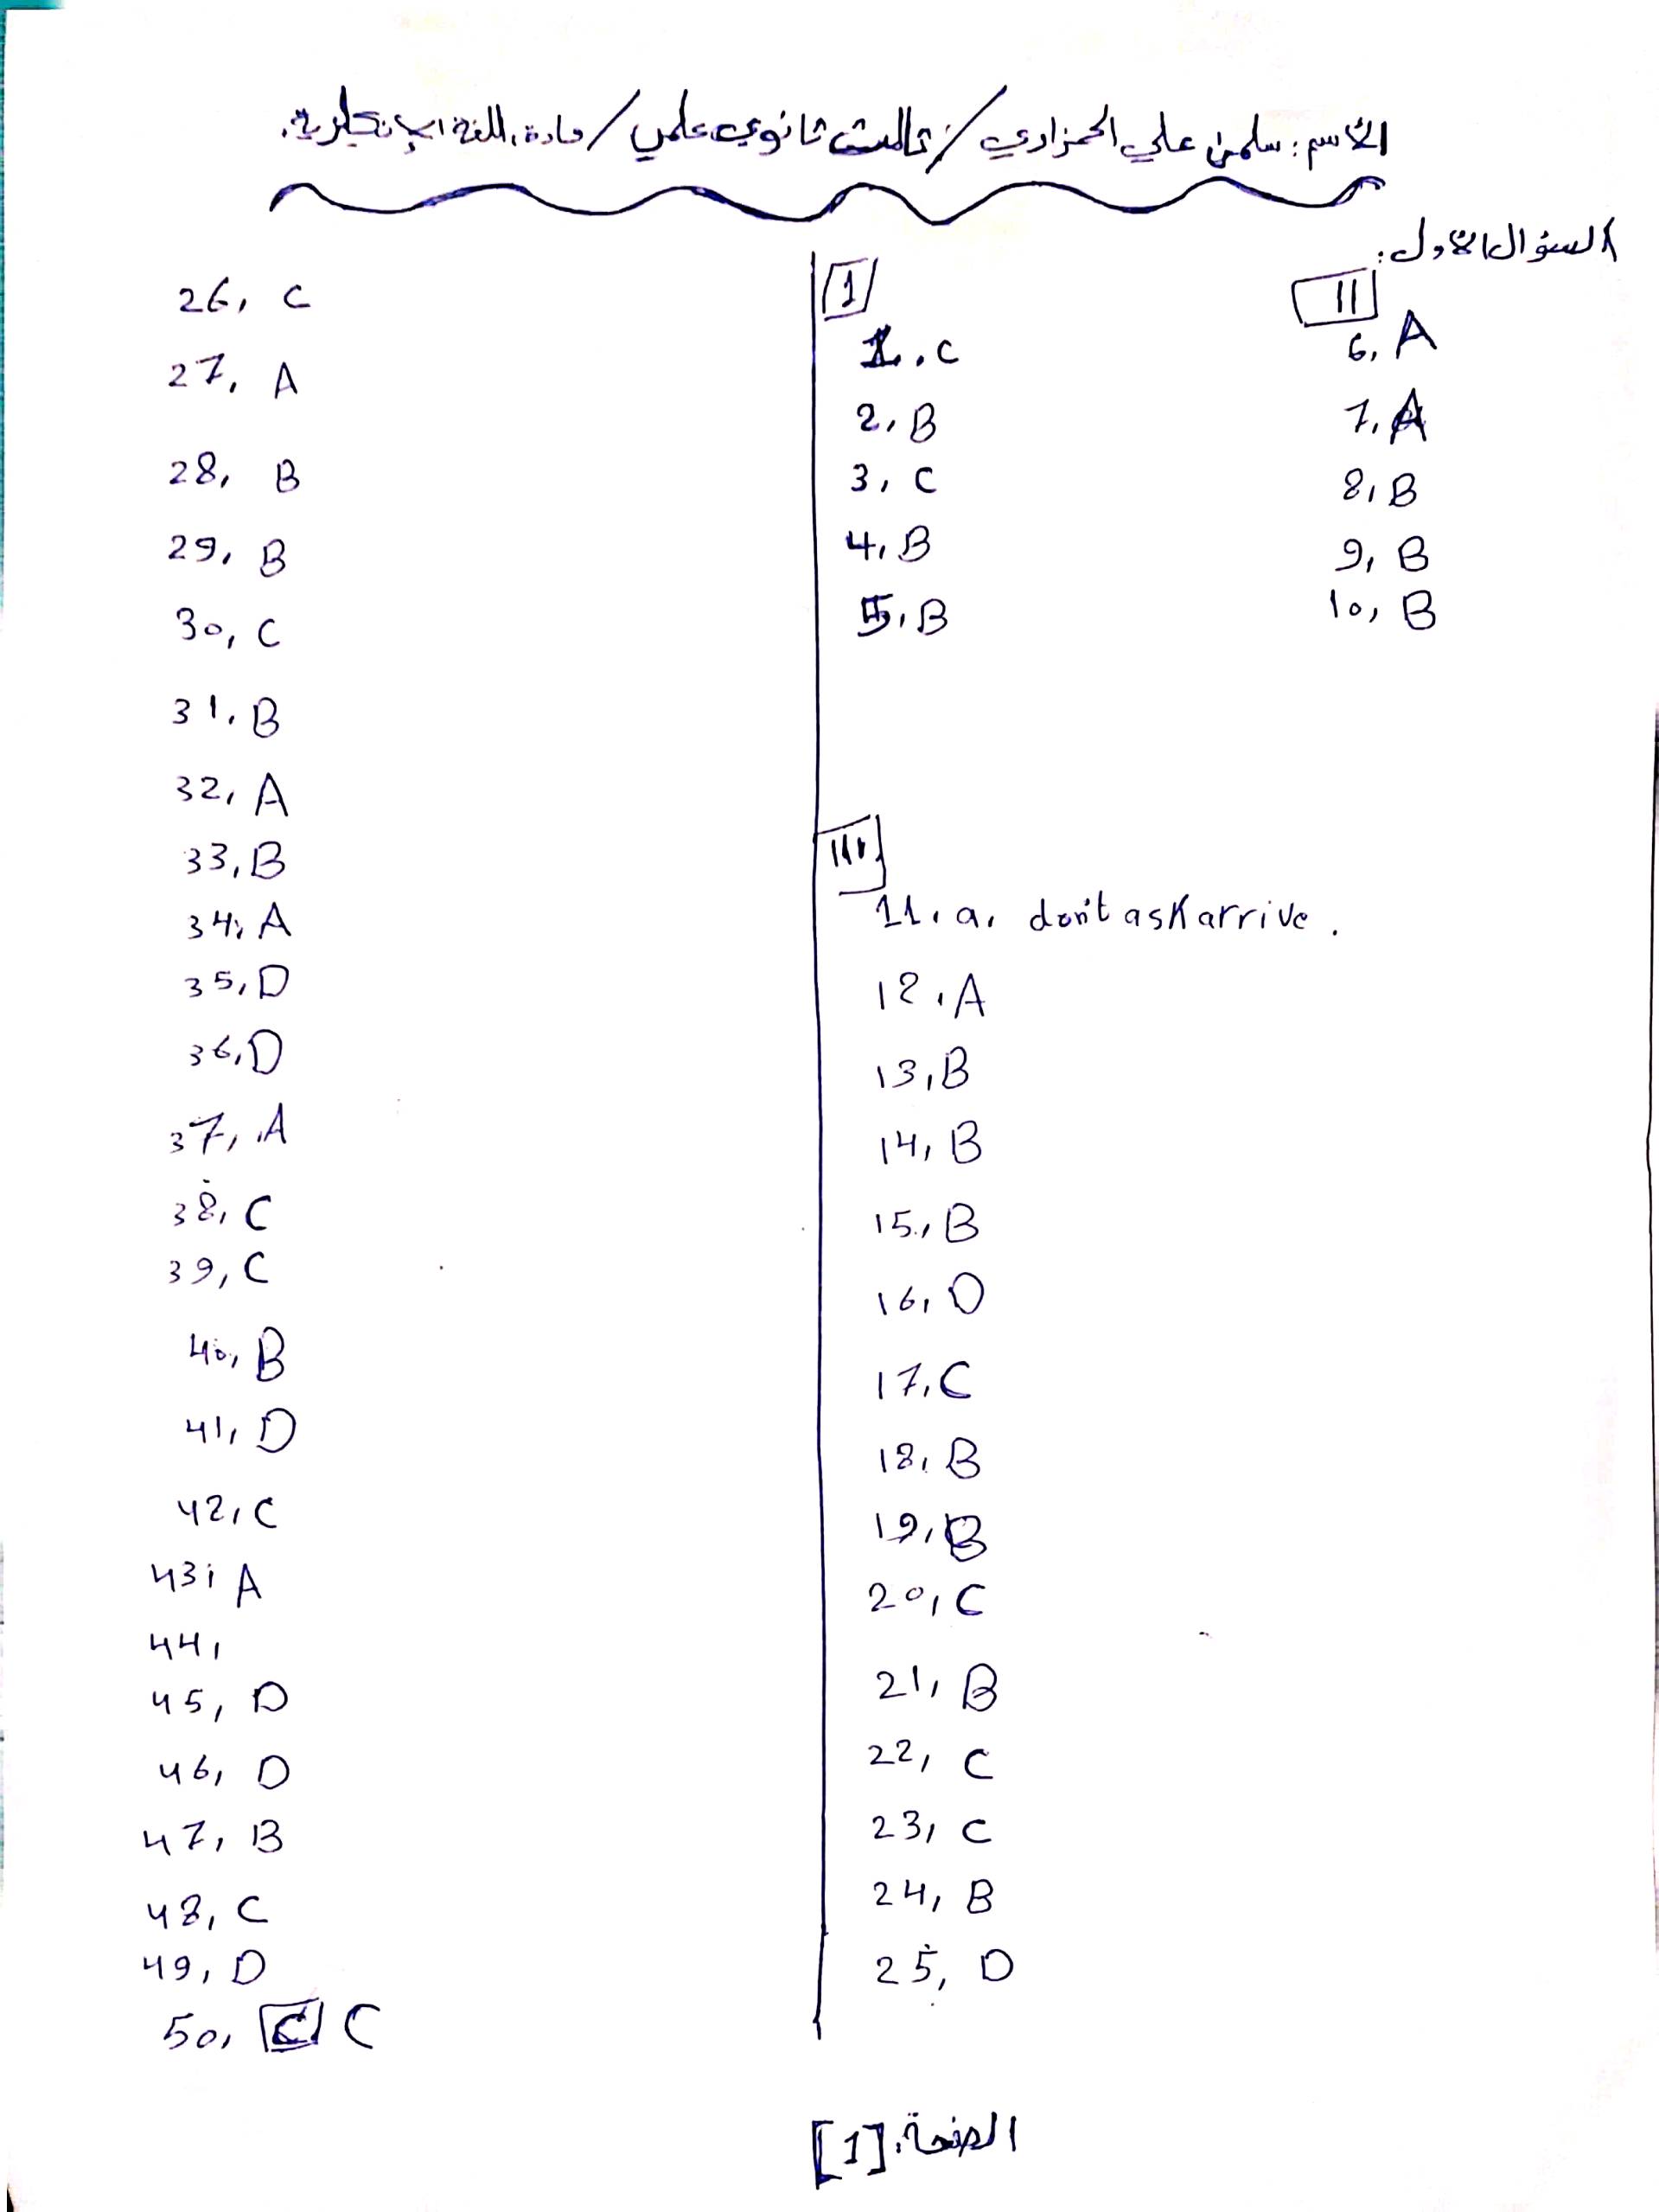 الاسم: سلمى علي الحمزاوي / ثالث ثانوي علمي / مادة اللغة الإنكليزية.
السؤال الأول:
I
1. C
2, B
3, C
4, B
5, B
II
6, A
7, A
8, B
9, B
10, B
III
11, a, don't ask arrive.
12, A
13, B
14, B
15, B
16, D
17, C
18, B
19, B
20, C
21, B
22, C
23, C
24, B
25, D
26, C
27, A
28, B
29, B
30, C
31, B
32, A
33, B
34, A
35, D
36, D
37, A
38, C
39, C
40, B
41, D
42, C
43, A
44,
45, D
46, D
47, B
48, C
49, D
50, C C
الصفحة: [1]